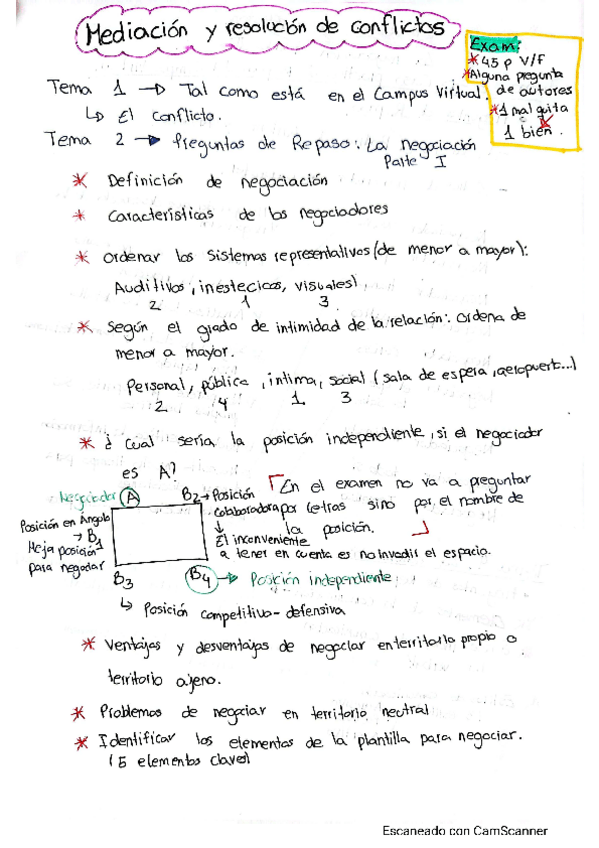 Mediación y resolución de conflictos
Exam:
* 45 p V/F
* Alguna pregunta
de autores
* 1 mal quita
1 bien.
Tema 1 → Tal como está en el Campus Virtual.
↳ El conflicto.
Tema 2 → Preguntas de Repaso: La negociación
Parte I
* Definición de negociación
* Características de los negociadores
* Ordenar los sistemas representativos (de menor a mayor):
Auditivos, inestecicos, visuales)
2 1 3
* Según el grado de intimidad de la relación: Ordena de
menor a mayor.
Personal, pública, intima, social (sala de espera, aeropuerto...)
2 4 1 3
* ¿Cuál sería la posición independiente, si el negociador
es A?
Negociador A
B2 → Posición
colaboradora
↓
El inconveniente
a tener en cuenta es no invadir el espacio.
En el examen no va a preguntar
por letras sino por el nombre de
la posición.
Posición en Angulo
→ B1
Mejor posición
para negociar
B3
↳ Posición competitivo-defensiva
B4 → Posición independiente
* Ventajas y desventajas de negociar en territorio propio o
territorio ajeno.
* Problemas de negociar en territorio neutral
* Identificar los elementos de la plantilla para negociar.
(5 elementos clave)
Escaneado con CamScanner